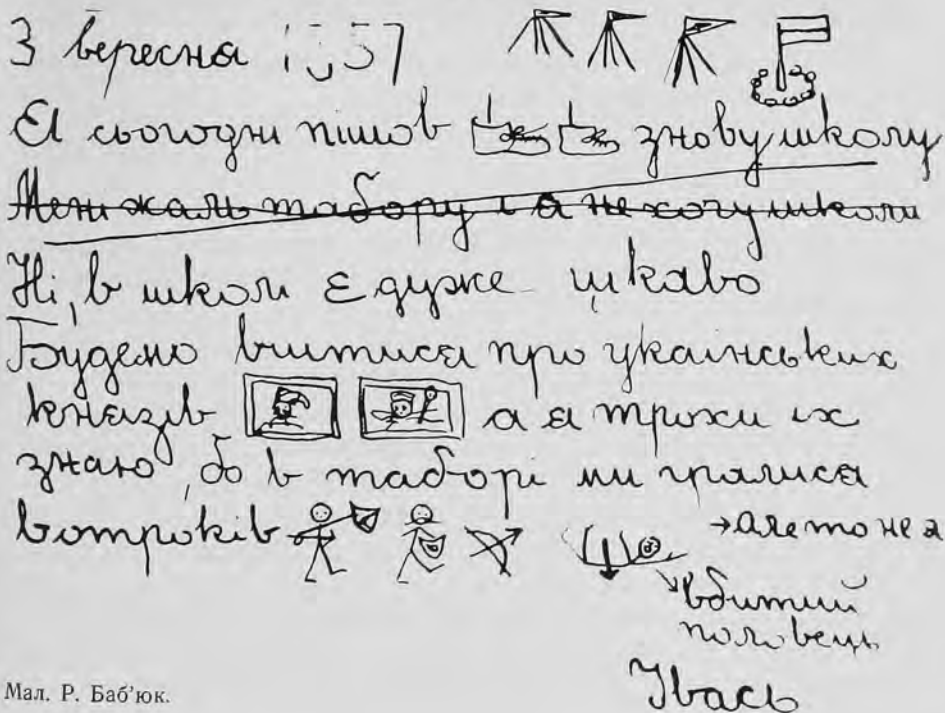 3 вересня
Я сьогодні пішов знову школу
Мені жаль табору і я не хочу школи
Ні, в школі є дуже цікаво
Будемо вчитися про укаінських
князів а я трохи іх
знаю, бо в таборі ми гралися
вотроків → але то не я
вбитий
половець
Івась
Мал. Р. Баб'юк.